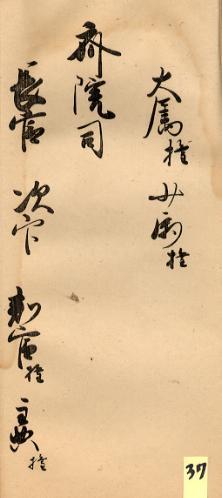 大属権 少属権
斎院司
長官 次官 判官権 主典権
37